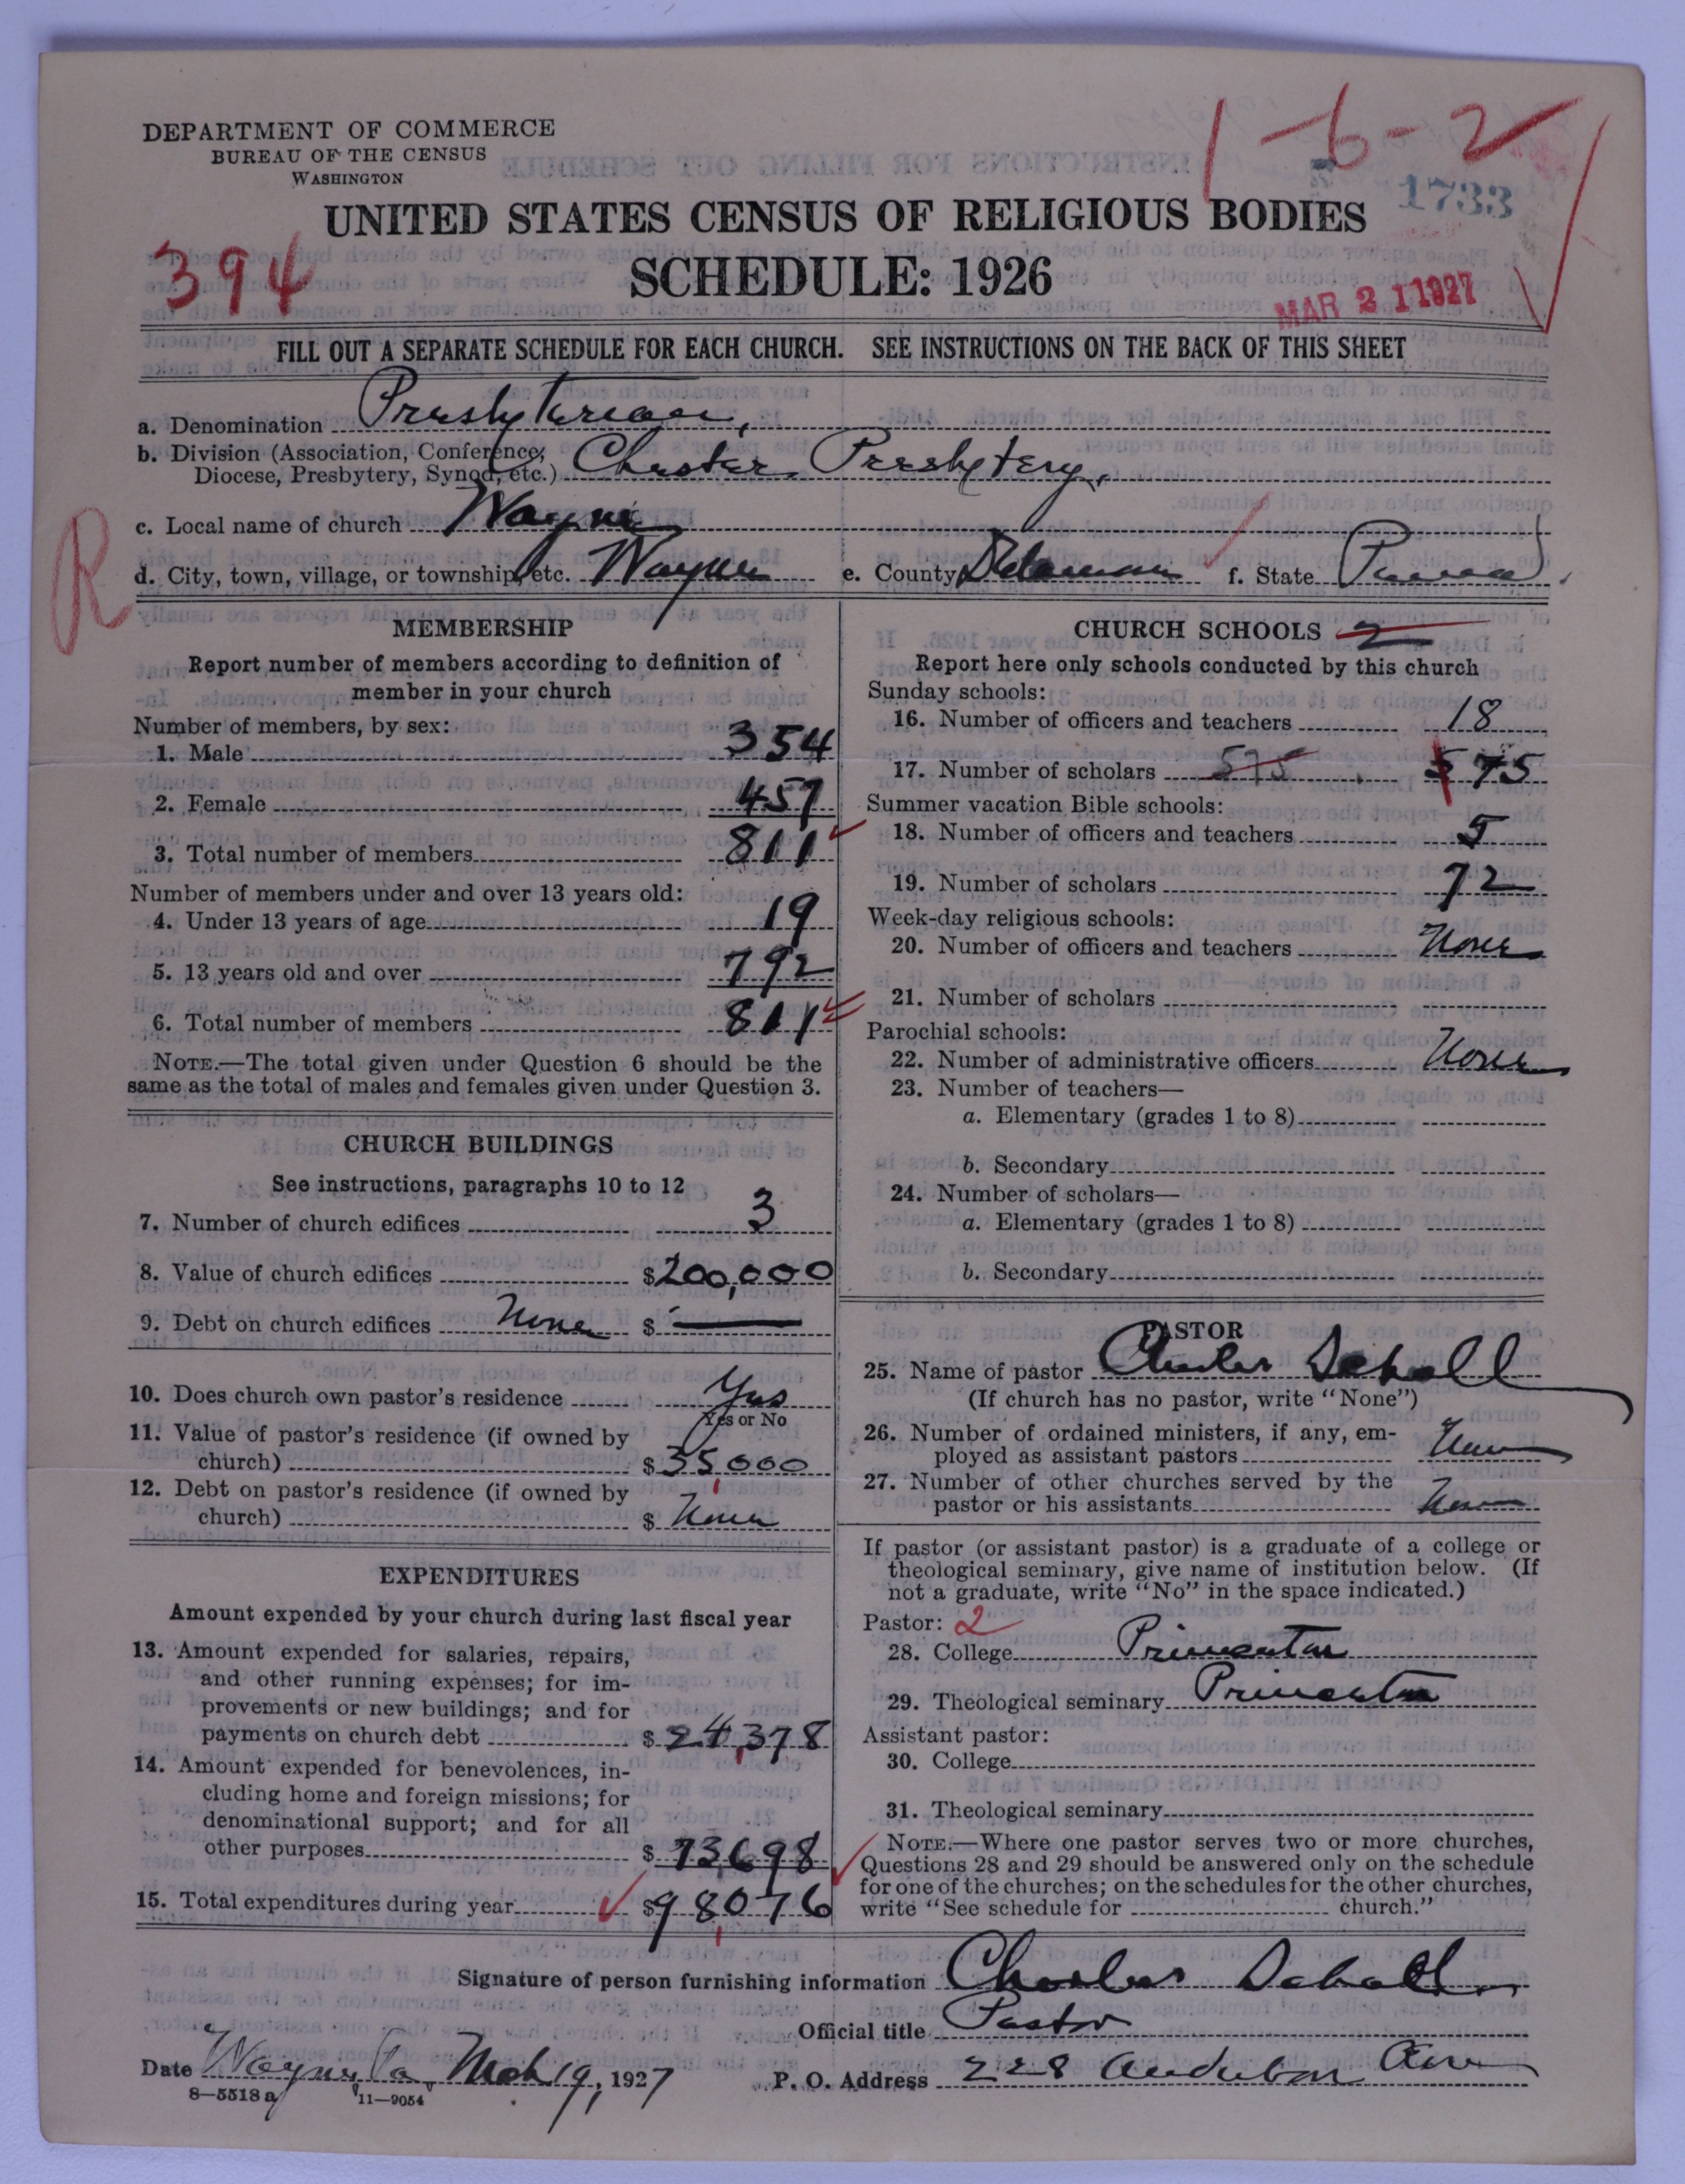 1-6-2
DEPARTMENT OF COMMERCE
BUREAU OF THE CENSUS
WASHINGTON
1733
UNITED STATES CENSUS OF RELIGIOUS BODIES
394
SCHEDULE: 1926
MAR 21 1927
FILL OUT A SEPARATE SCHEDULE FOR EACH CHURCH. SEE INSTRUCTIONS ON THE BACK OF THIS SHEET
a. Denomination Presbyterian,
b. Division (Association, Conference,
Diocese, Presbytery, Synod, etc.) Chester Presbytery,
c. Local name of church Wayne
R
d. City, town, village, or township, etc. Wayne e. County Delaware f. State Penna.
MEMBERSHIP
Report number of members according to definition of
member in your church
Number of members, by sex:
1. Male 354
2. Female 457
3. Total number of members 811
Number of members under and over 13 years old:
4. Under 13 years of age 19
5. 13 years old and over 792
6. Total number of members 811
NOTE.—The total given under Question 6 should be the
same as the total of males and females given under Question 3.
CHURCH BUILDINGS
See instructions, paragraphs 10 to 12
7. Number of church edifices 3
8. Value of church edifices $200,000
9. Debt on church edifices None $ —
10. Does church own pastor's residence Yes
Yes or No
11. Value of pastor's residence (if owned by
church) $35,000
12. Debt on pastor's residence (if owned by
church) $ None
EXPENDITURES
Amount expended by your church during last fiscal year
13. Amount expended for salaries, repairs,
and other running expenses; for im-
provements or new buildings; and for
payments on church debt $24,378
14. Amount expended for benevolences, in-
cluding home and foreign missions; for
denominational support; and for all
other purposes $73,698
15. Total expenditures during year $98,076
CHURCH SCHOOLS 2
Report here only schools conducted by this church
Sunday schools:
16. Number of officers and teachers 18
17. Number of scholars 575 575
Summer vacation Bible schools:
18. Number of officers and teachers 5
19. Number of scholars 72
Week-day religious schools:
20. Number of officers and teachers None
21. Number of scholars
Parochial schools:
22. Number of administrative officers None
23. Number of teachers—
a. Elementary (grades 1 to 8)
b. Secondary
24. Number of scholars—
a. Elementary (grades 1 to 8)
b. Secondary
PASTOR
25. Name of pastor Charles Schall
(If church has no pastor, write "None")
26. Number of ordained ministers, if any, em-
ployed as assistant pastors None
27. Number of other churches served by the
pastor or his assistants None
If pastor (or assistant pastor) is a graduate of a college or
theological seminary, give name of institution below. (If
not a graduate, write "No" in the space indicated.)
Pastor: 2
28. College Princeton
29. Theological seminary Princeton
Assistant pastor:
30. College
31. Theological seminary
NOTE.—Where one pastor serves two or more churches,
Questions 28 and 29 should be answered only on the schedule
for one of the churches; on the schedules for the other churches,
write "See schedule for church."
Signature of person furnishing information Charles Schall
Official title Pastor
Date Wayne, Pa. Mch 19, 1927 P. O. Address 228 Audubon Ave
8—5518 a 11—9054